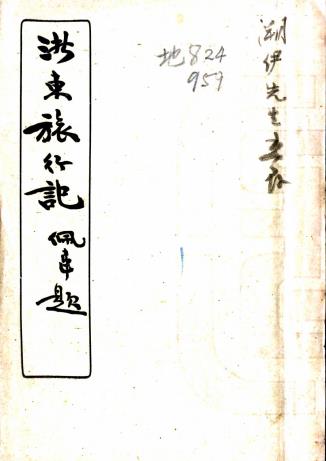 溯伊先生
地824
959
浙東旅行記 佩韋題